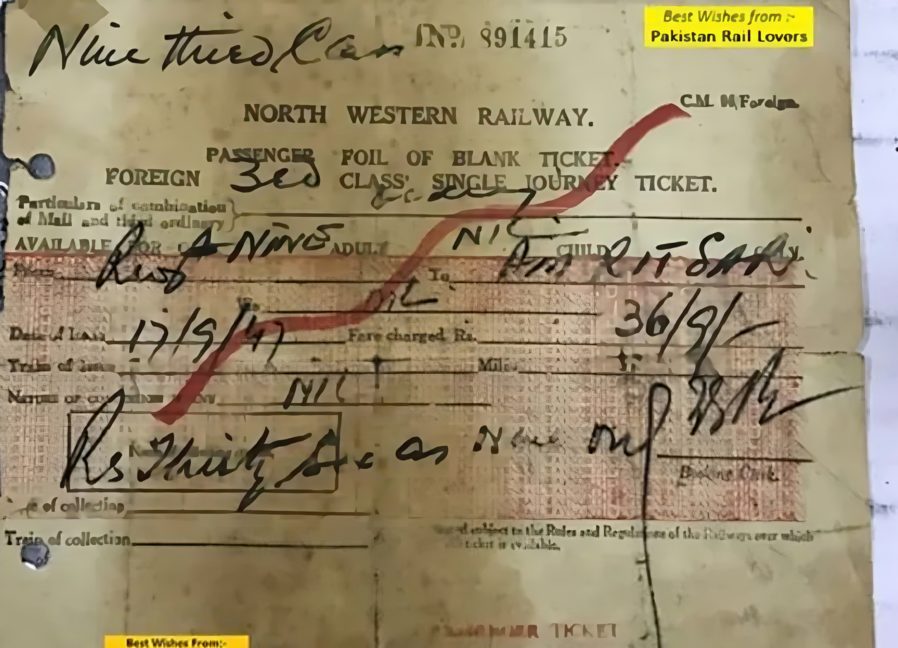 Best Wishes from :-
Pakistan Rail Lovers
Nine third Class NP. 891415
C.M. H/Foreign.
NORTH WESTERN RAILWAY.
PASSENGER FOIL OF BLANK TICKET.
FOREIGN 3rd CLASS' SINGLE JOURNEY TICKET.
Particulars of combination
of Mail and third ordinary
AVAILABLE FOR NINE ADULT NIL CHILD
From To AMRITSAR
Nil
Date of Issue 17/9/47 Fare charged Rs. 36/9/-
Train of Issue Miles
NATURE OF NIL
Rs Thirty Six as Nine only
Booking Clerk
of collection
Train of collection
subject to the Rules and Regulations of the Railways over which
ticket is available.
PASSENGER TICKET
Best Wishes From:-